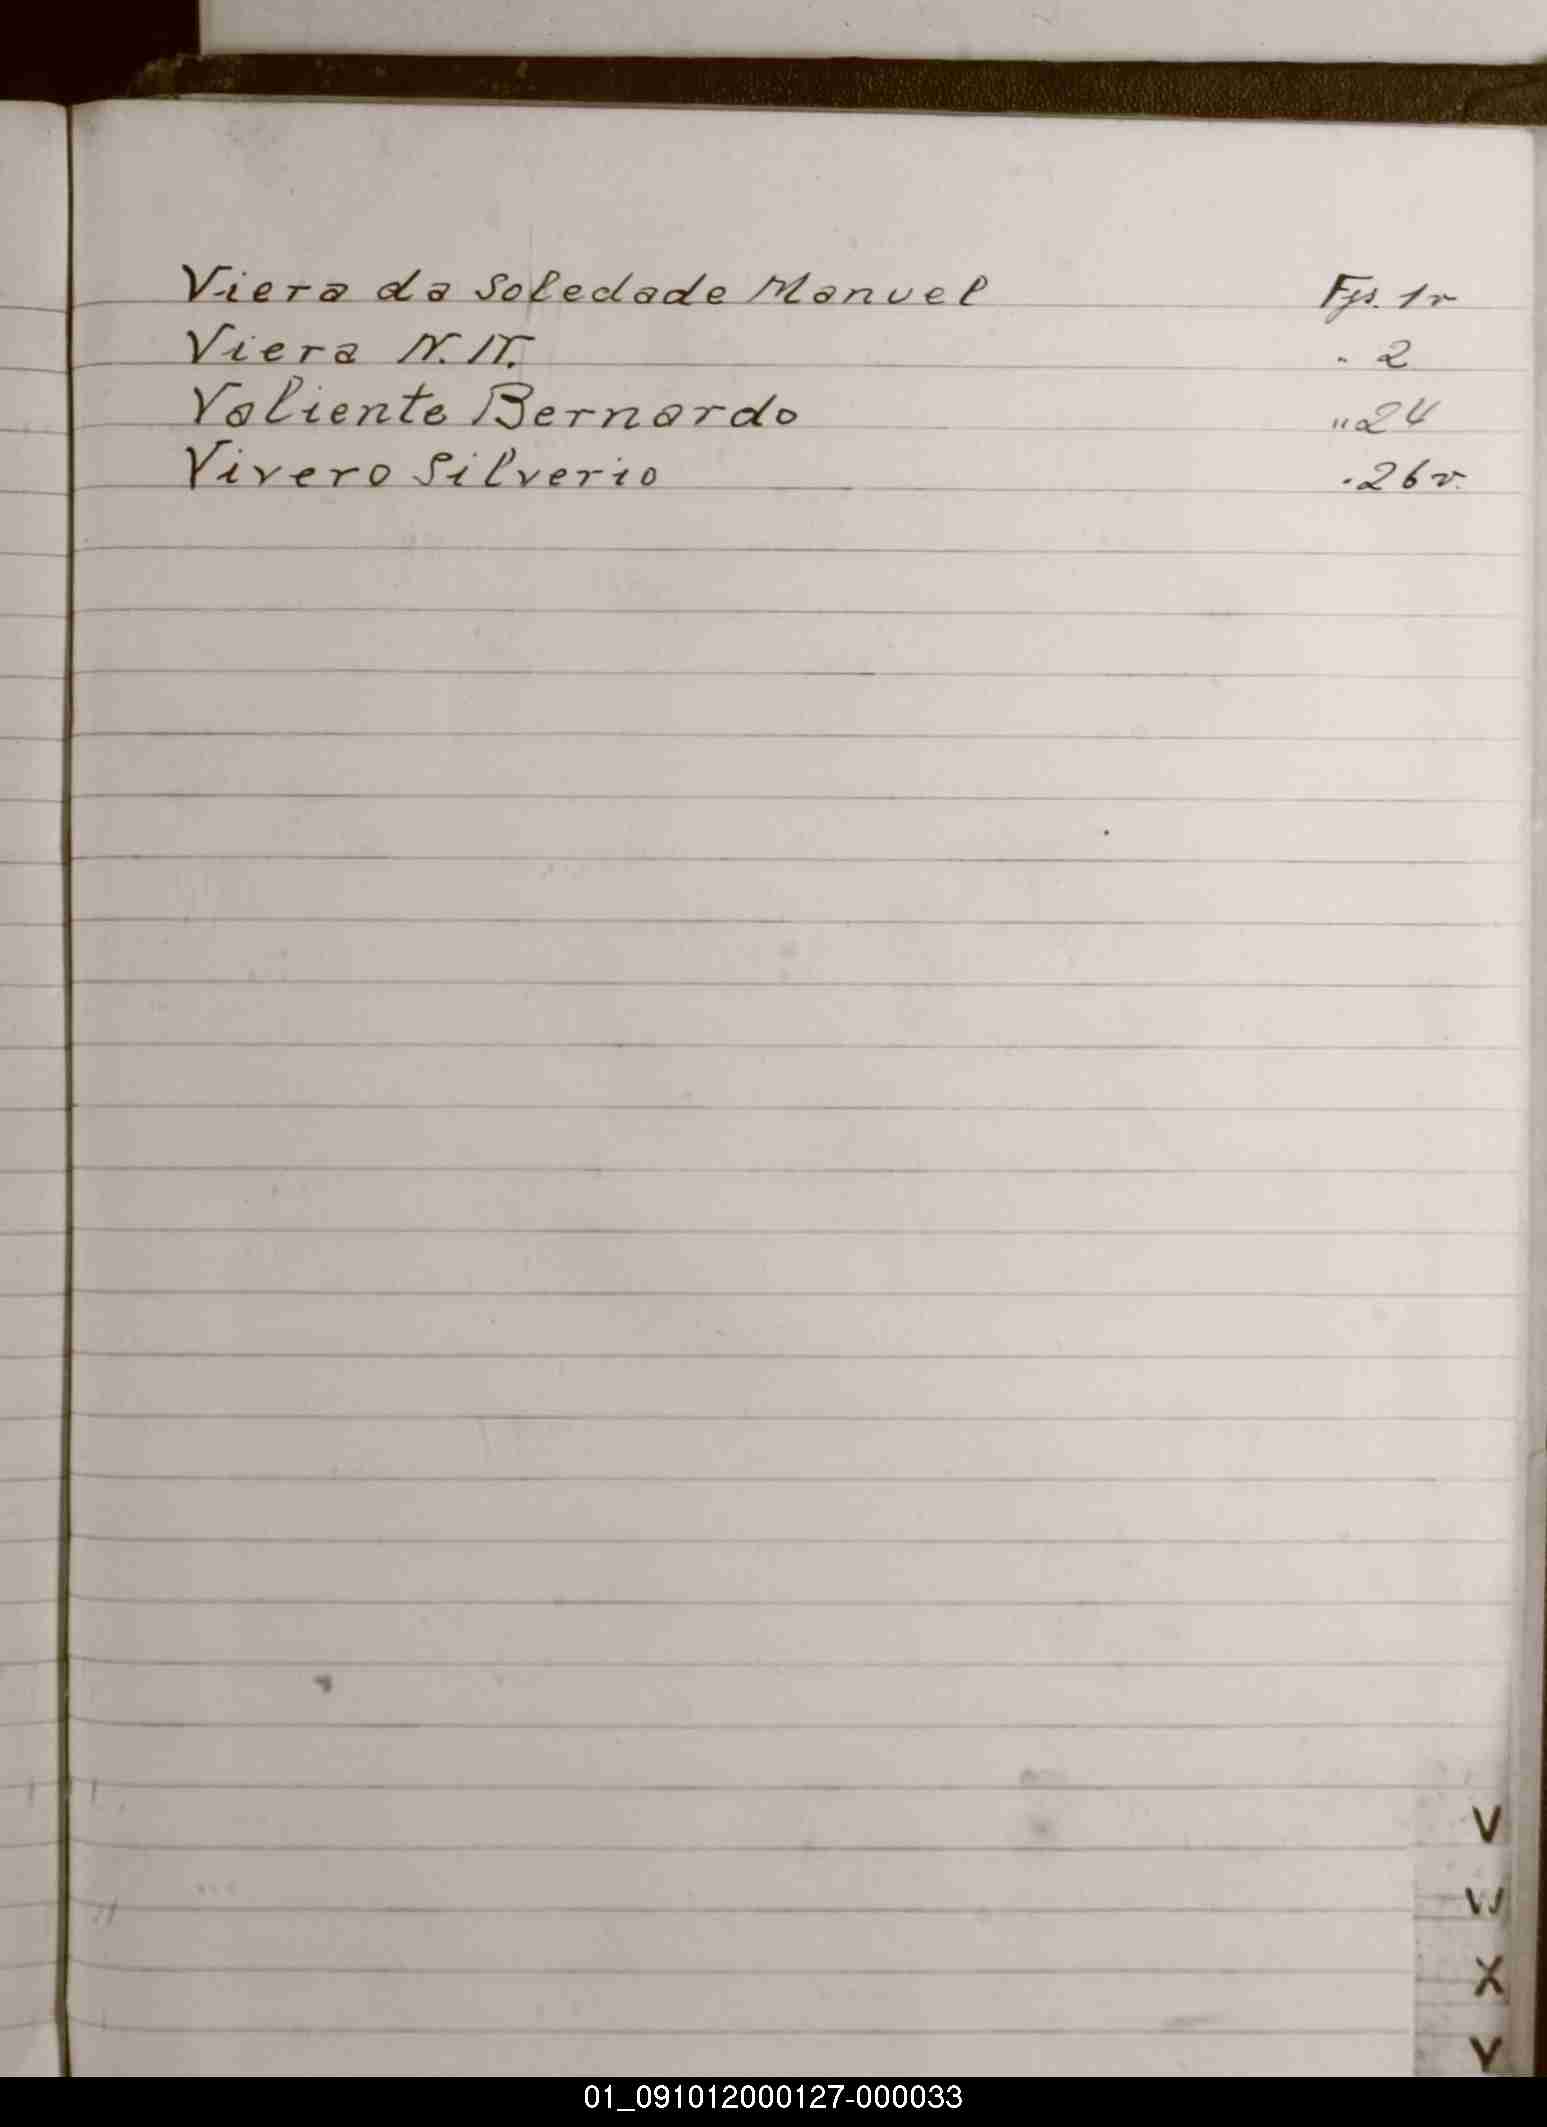 Viera da Soledade Manuel Fjs. 1v
Viera N.N. " 2
Valiente Bernardo " 24
Vivero Silverio " 26v.
V
W
X
Y
01_091012000127-000033